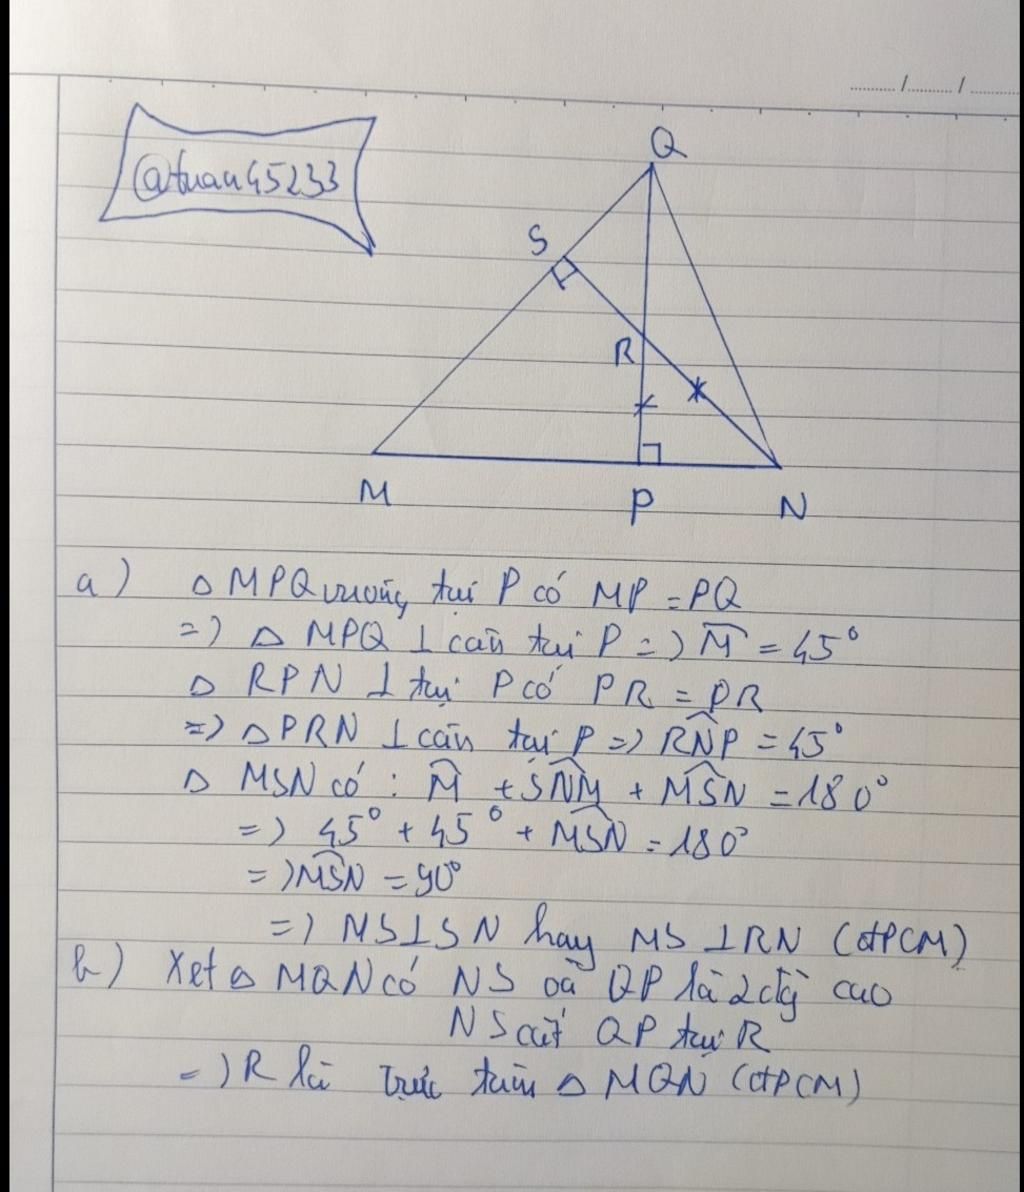 @tuan45233
Q
S
R
M
P
N
a) △ MPQ vuông tại P có MP = PQ
=) △ MPQ ⊥ cân tại P =) M̂ = 45°
△ RPN ⊥ tại P có PR = PR
=) △PRN ⊥ cân tại P =) RN̂P = 45°
△ MSN có : M̂ + SN̂M + MŜN = 180°
=) 45° + 45° + MŜN = 180°
=) MŜN = 90°
=) MS⊥SN hay MS ⊥RN (đPCM)
b) Xét △ MQN có NS và QP là 2 đg cao
NS cắt QP tại R
=) R là trực tâm △ MQN (đPCM)